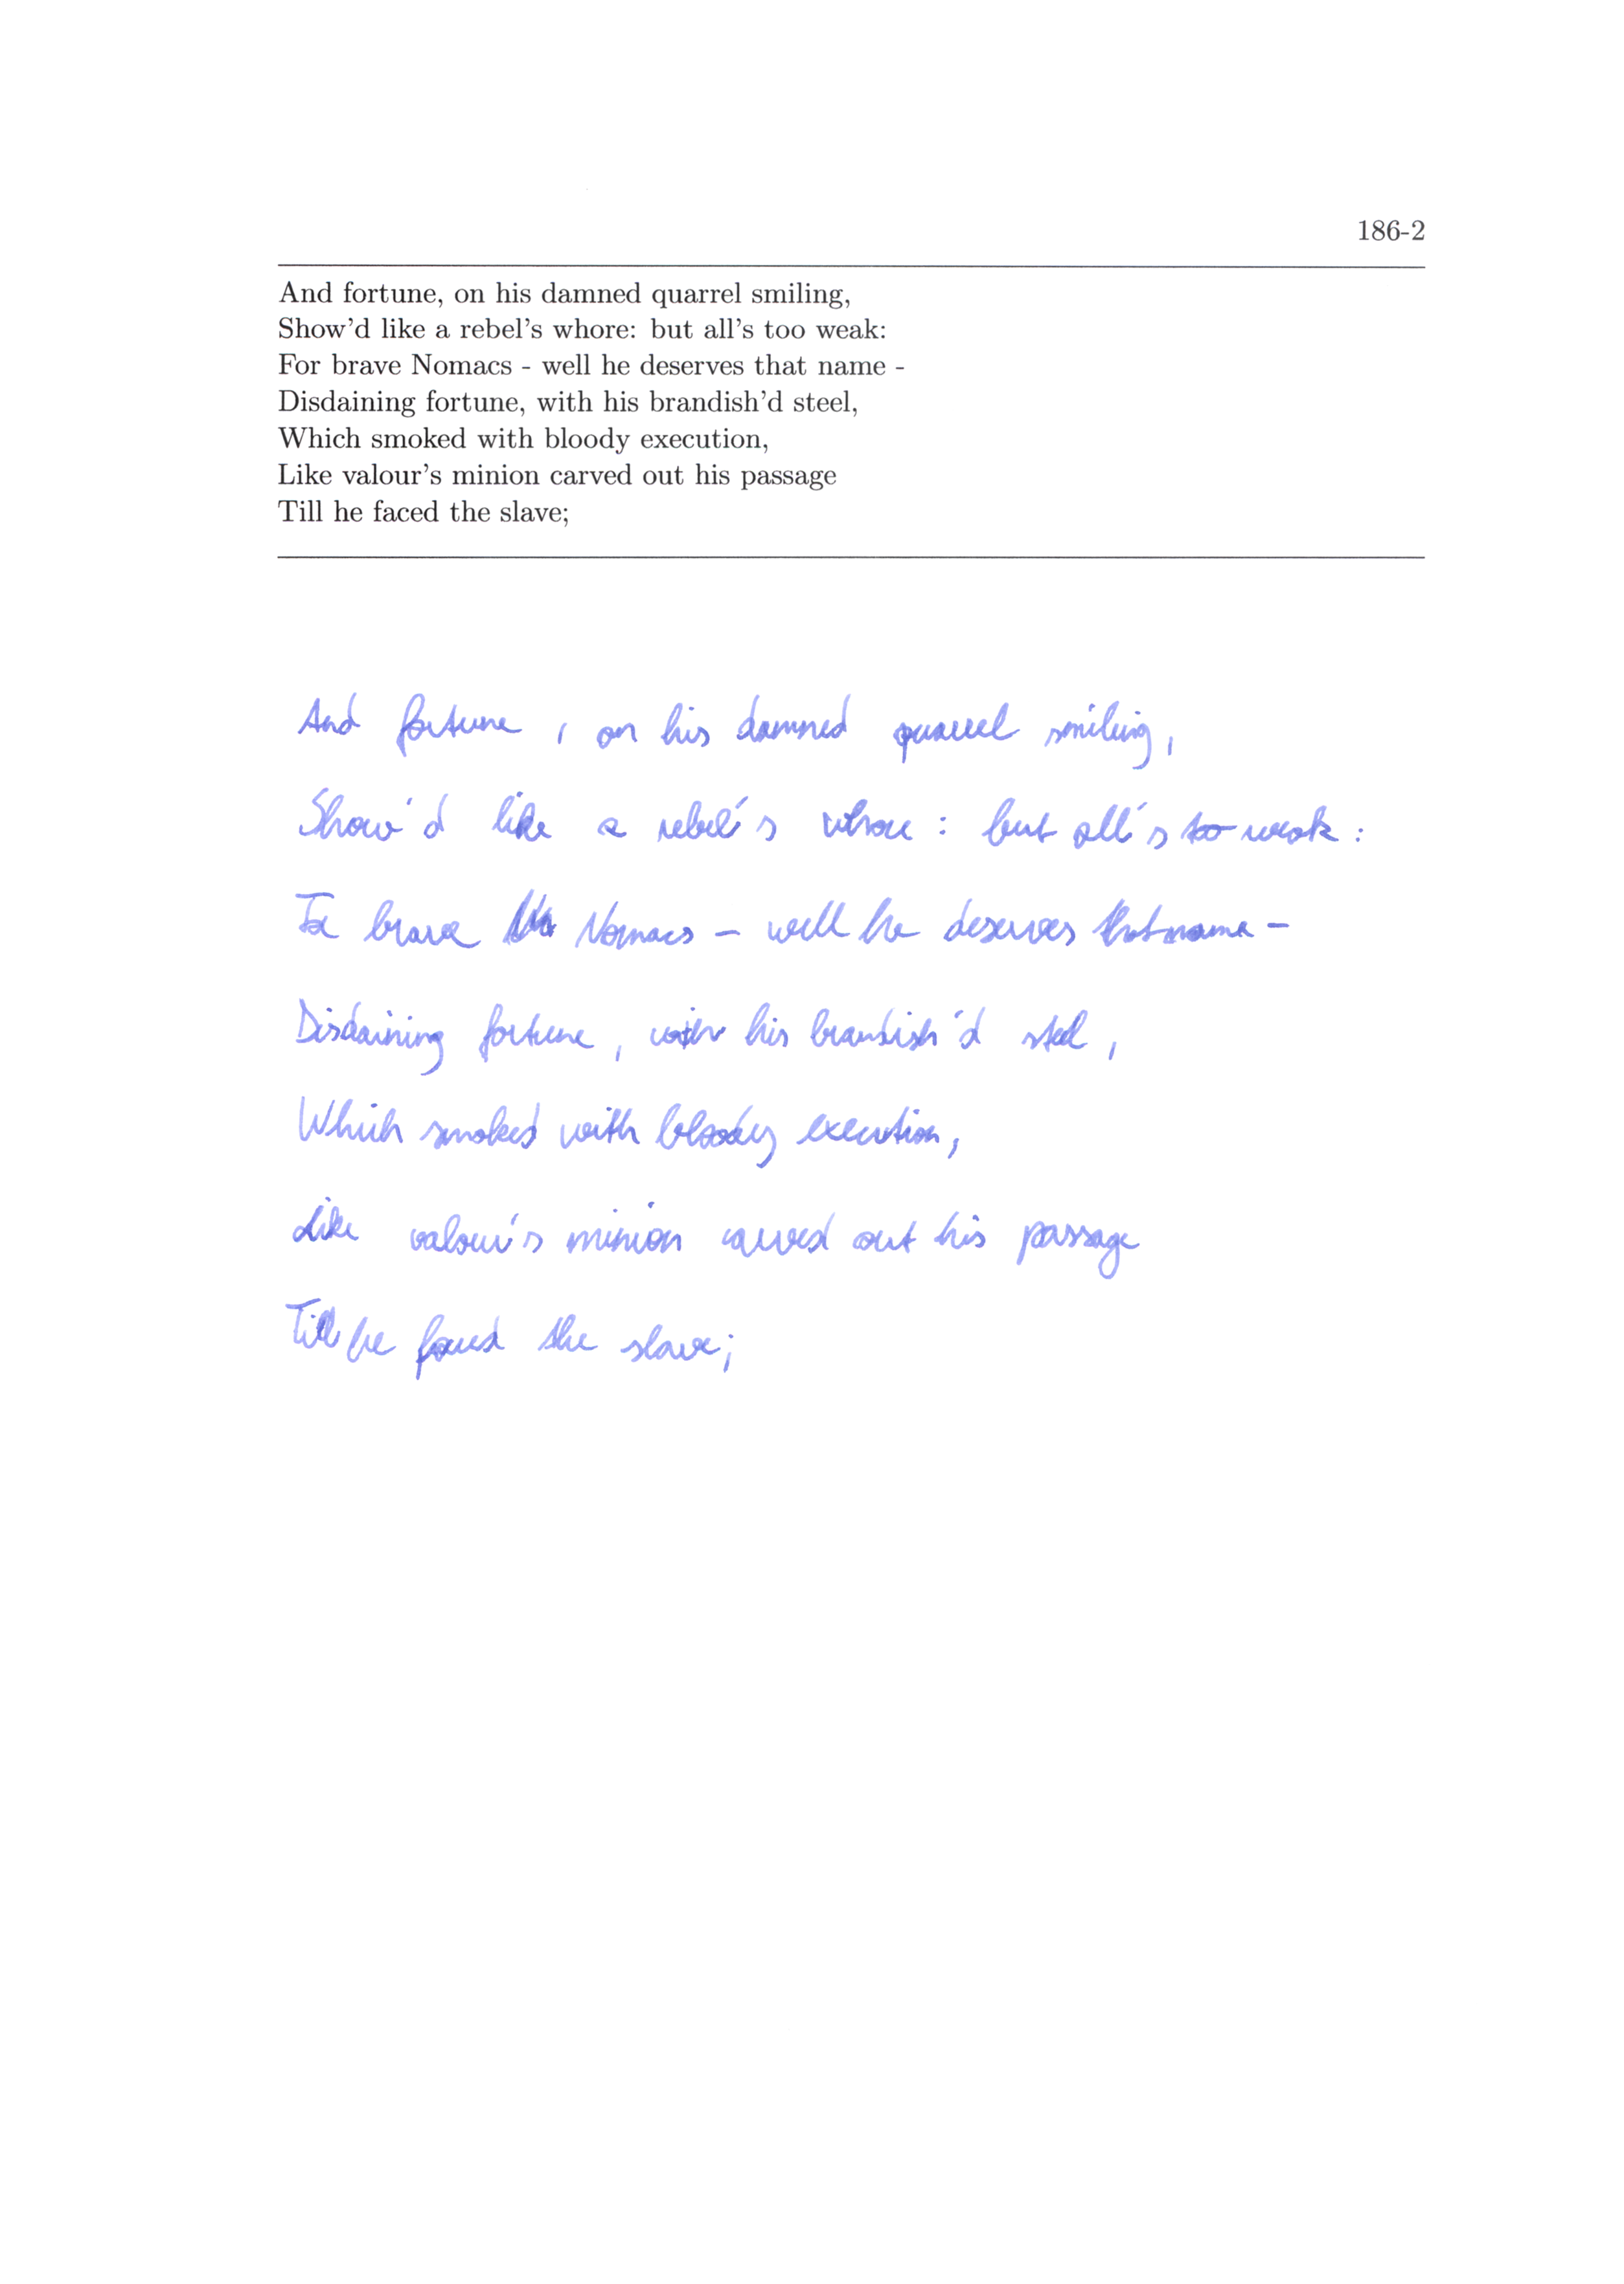 186-2
And fortune, on his damned quarrel smiling,
Show'd like a rebel's whore: but all's too weak:
For brave Nomacs - well he deserves that name -
Disdaining fortune, with his brandish'd steel,
Which smoked with bloody execution,
Like valour's minion carved out his passage
Till he faced the slave;
And fortune, on his damned quarrel smiling,
Show'd like a rebel's whore: but all's too weak:
For brave Nomacs - well he deserves that name -
Disdaining fortune, with his brandish'd steel,
Which smoked with bloody execution,
Like valour's minion carved out his passage
Till he faced the slave;